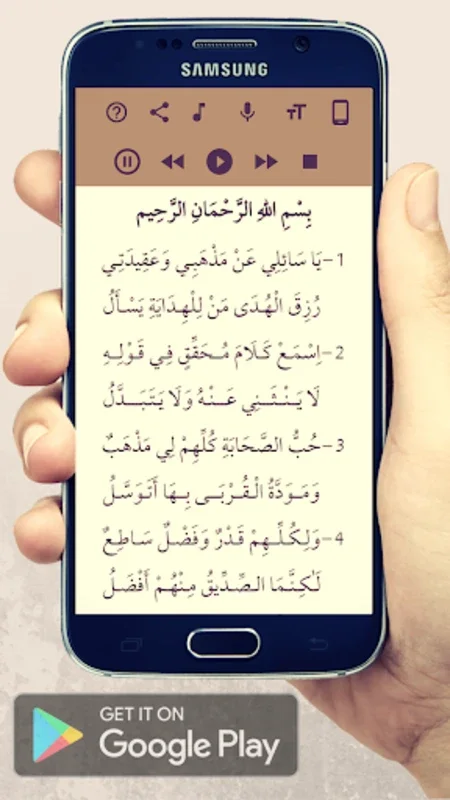 SAMSUNG
بِسْمِ اللهِ الرَّحْمَانِ الرَّحِيم
1- يَا سَائِلِي عَنْ مَذْهَبِي وَعَقِيدَتِي
رُزِقَ الْهُدَى مَنْ لِلْهِدَايَةِ يَسْأَلُ
2- اِسْمَعْ كَلَامَ مُحَقِّقٍ فِي قَوْلِهِ
لَا يَنْثَنِي عَنْهُ وَلَا يَتَبَدَّلُ
3- حُبُّ الصَّحَابَةِ كُلِّهِمْ لِي مَذْهَبٌ
وَمَوَدَّةُ الْقُرْبَى بِهَا أَتَوَسَّلُ
4- وَلِكُلِّهِمْ قَدْرٌ وَفَضْلٌ سَاطِعٌ
لَكِنَّمَا الصِّدِّيقُ مِنْهُمْ أَفْضَلُ
GET IT ON
Google Play